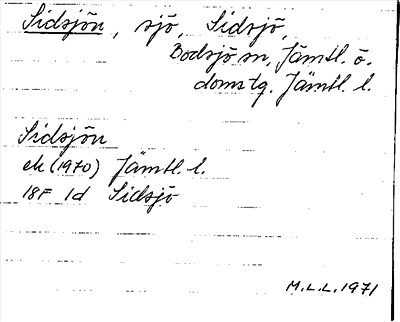 Sidsjön, sjö, Sidsjö,
Bodsjö sn, Jämtl. ö.
domstg. Jämtl. l.
Sidsjön
ek (1970) Jämtl. l.
18F 1d Sidsjö
M.L.L. 1971